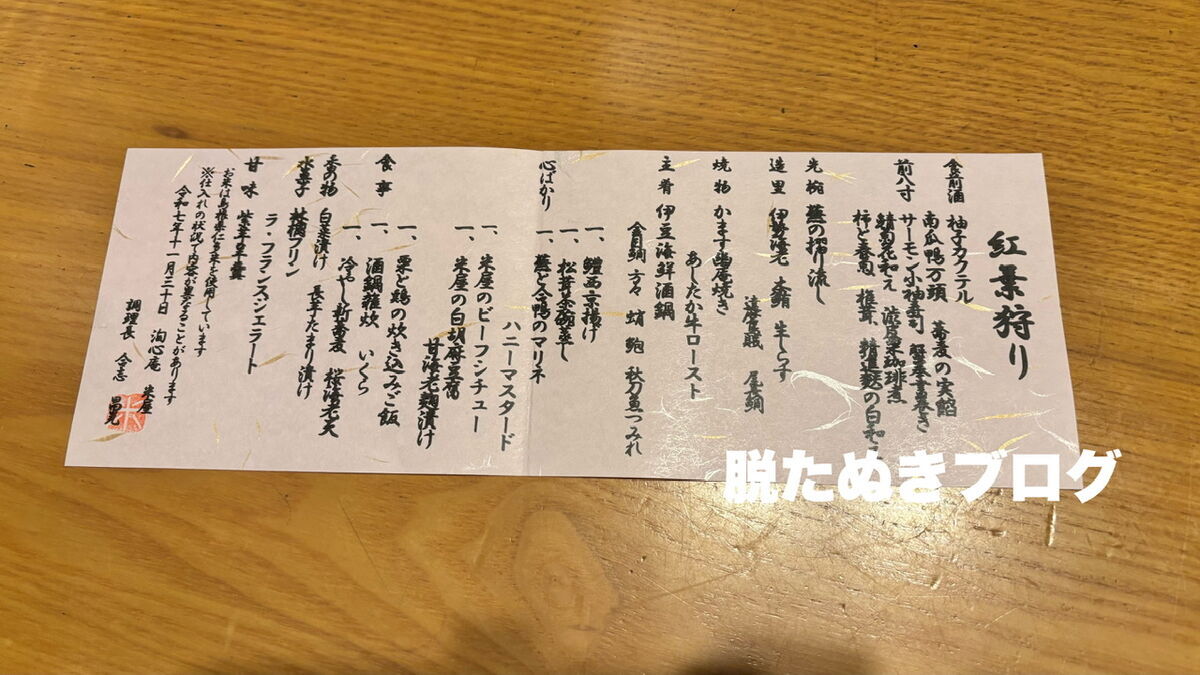 紅葉狩り
食前酒 柚子カクテル
前八寸 南瓜鴨万頭 蕎麦の実餡
サーモン小袖寿司 蟹養老巻き
鯖菊花和え 波皮栗珈琲煮
柿と春菊、椎茸、精進麩の白和え
先椀 蕪の摺り流し
造里 伊勢海老 本鮪 牛とろ
遠山 尾鯛
焼物 かます塩麹焼き
あしたか牛ロースト
主肴 伊豆海鮮酒鍋
金目鯛 方々 蛸 鮑 秋刀魚つみれ
心ばかり
一、鱧西京揚げ
一、松茸茶碗蒸し
一、蕪と合鴨のマリネ
ハニーマスタード
一、米屋のビーフシチュー
一、米屋の白胡麻豆腐
甘海老麹漬け
食事 一、栗と鶏の炊き込みご飯
一、酒鍋雑炊 いくら
一、冷やし新蕎麦 桜海老天
香の物 白菜漬け 長芋たまり漬け
水菓子 林檎プリン
ラ・フランスジェラート
甘味 紫芋羊羹
お米は島根県仁多米を使用しています
※仕入れの状況で内容が異なることがあります
令和七年十一月三十日 洵心庵 米屋
調理長 今志
脱たぬきブログ